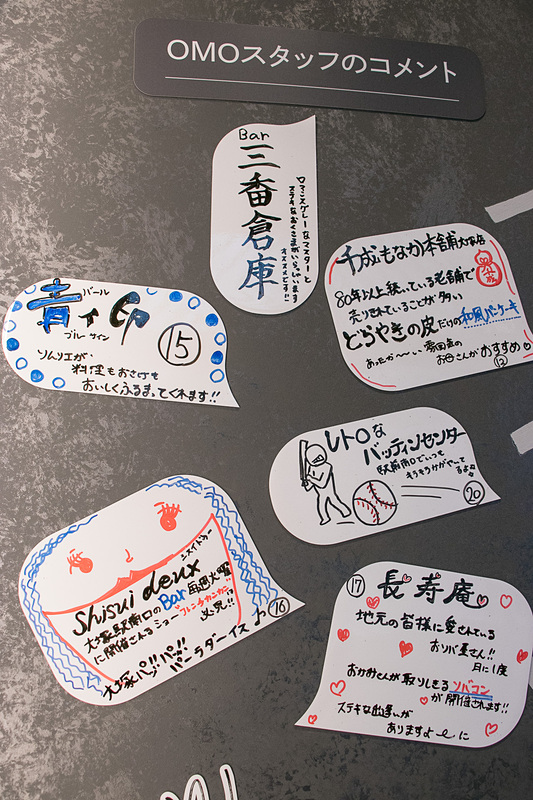 OMOスタッフのコメント
Bar
三番倉庫
ロマンスグレーなマスターと
ステキなおくさまがいらっしゃいます
オススメです!!
千成もなか本舗 大塚店
80年以上続いている老舗で
売りきれていることが多い
どらやきの皮だけの和風パンケーキ
あったか〜い雰囲気の
お母さんがおすすめ
12
バール
青イ印
ブルーサイン
15
ソムリエが
料理もお酒も
おいしくふるまってくれます!!
レトロな
バッティングセンター
駅前南口でいつも
20
Shisui deux
シスイドゥ
大塚駅南口のBar 毎週火曜
に開催されるショー フレンチカンカン
必見!!
大塚パッ!!パッ!!
パーラダーイス♪
16
17
長寿庵
地元の皆様に愛されている
おソバ屋さん!!
月に1度
おかみさんが取りしきるソバコン
が開催されます!!
ステキな出逢いが
ありますように